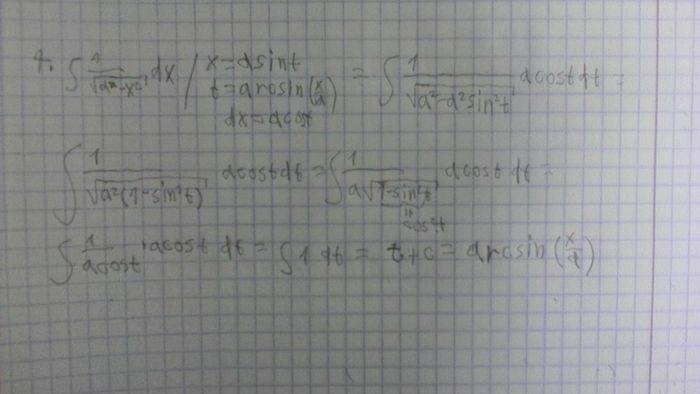 4. ∫ 1/√(a²-x²) dx / x = a sin t = ∫ 1/√(a²-a²sin²t) a cos t dt =
t = arcsin(x/a)
dx = a cos t
∫ 1/√(a²(1-sin²t)) a cos t dt = ∫ 1/(a√(1-sin²t)) a cos t dt =
cos²t
∫ 1/(a cos t) · a cos t dt = ∫ 1 dt = t + c = arcsin(x/a)